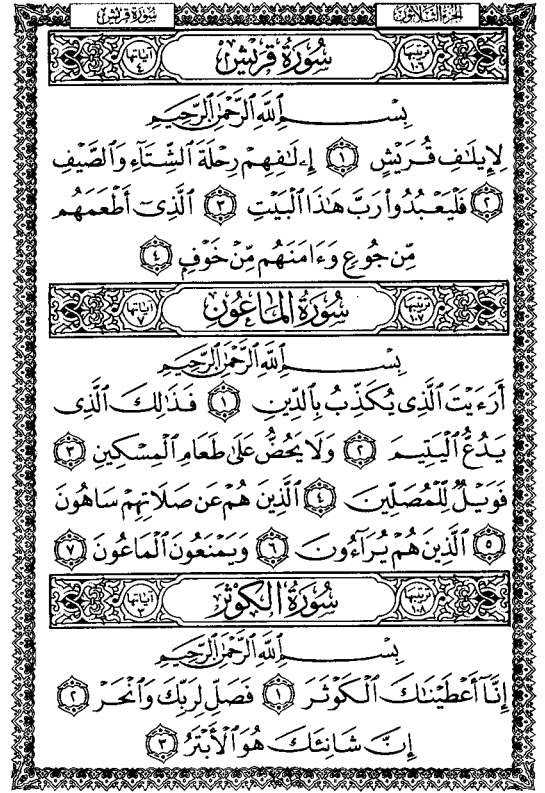 الجزء الثلاثون سورة قريش
ترتيبها ١٠٦ سُورَةُ قُرَيْشٍ آياتها ٤
بِسْمِ ٱللَّهِ ٱلرَّحْمَٰنِ ٱلرَّحِيمِ
لِإِيلَٰفِ قُرَيْشٍ ١ إِۦلَٰفِهِمْ رِحْلَةَ ٱلشِّتَآءِ وَٱلصَّيْفِ
٢ فَلْيَعْبُدُوا۟ رَبَّ هَٰذَا ٱلْبَيْتِ ٣ ٱلَّذِىٓ أَطْعَمَهُم
مِّن جُوعٍ وَءَامَنَهُم مِّنْ خَوْفٍ ٤
ترتيبها ١٠٧ سُورَةُ المَاعُونِ آياتها ٧
بِسْمِ ٱللَّهِ ٱلرَّحْمَٰنِ ٱلرَّحِيمِ
أَرَءَيْتَ ٱلَّذِى يُكَذِّبُ بِٱلدِّينِ ١ فَذَٰلِكَ ٱلَّذِى
يَدُعُّ ٱلْيَتِيمَ ٢ وَلَا يَحُضُّ عَلَىٰ طَعَامِ ٱلْمِسْكِينِ ٣
فَوَيْلٌ لِّلْمُصَلِّينَ ٤ ٱلَّذِينَ هُمْ عَن صَلَاتِهِمْ سَاهُونَ
٥ ٱلَّذِينَ هُمْ يُرَآءُونَ ٦ وَيَمْنَعُونَ ٱلْمَاعُونَ ٧
ترتيبها ١٠٨ سُورَةُ الكَوْثَرِ آياتها ٣
بِسْمِ ٱللَّهِ ٱلرَّحْمَٰنِ ٱلرَّحِيمِ
إِنَّآ أَعْطَيْنَٰكَ ٱلْكَوْثَرَ ١ فَصَلِّ لِرَبِّكَ وَٱنْحَرْ ٢
إِنَّ شَانِئَكَ هُوَ ٱلْأَبْتَرُ ٣